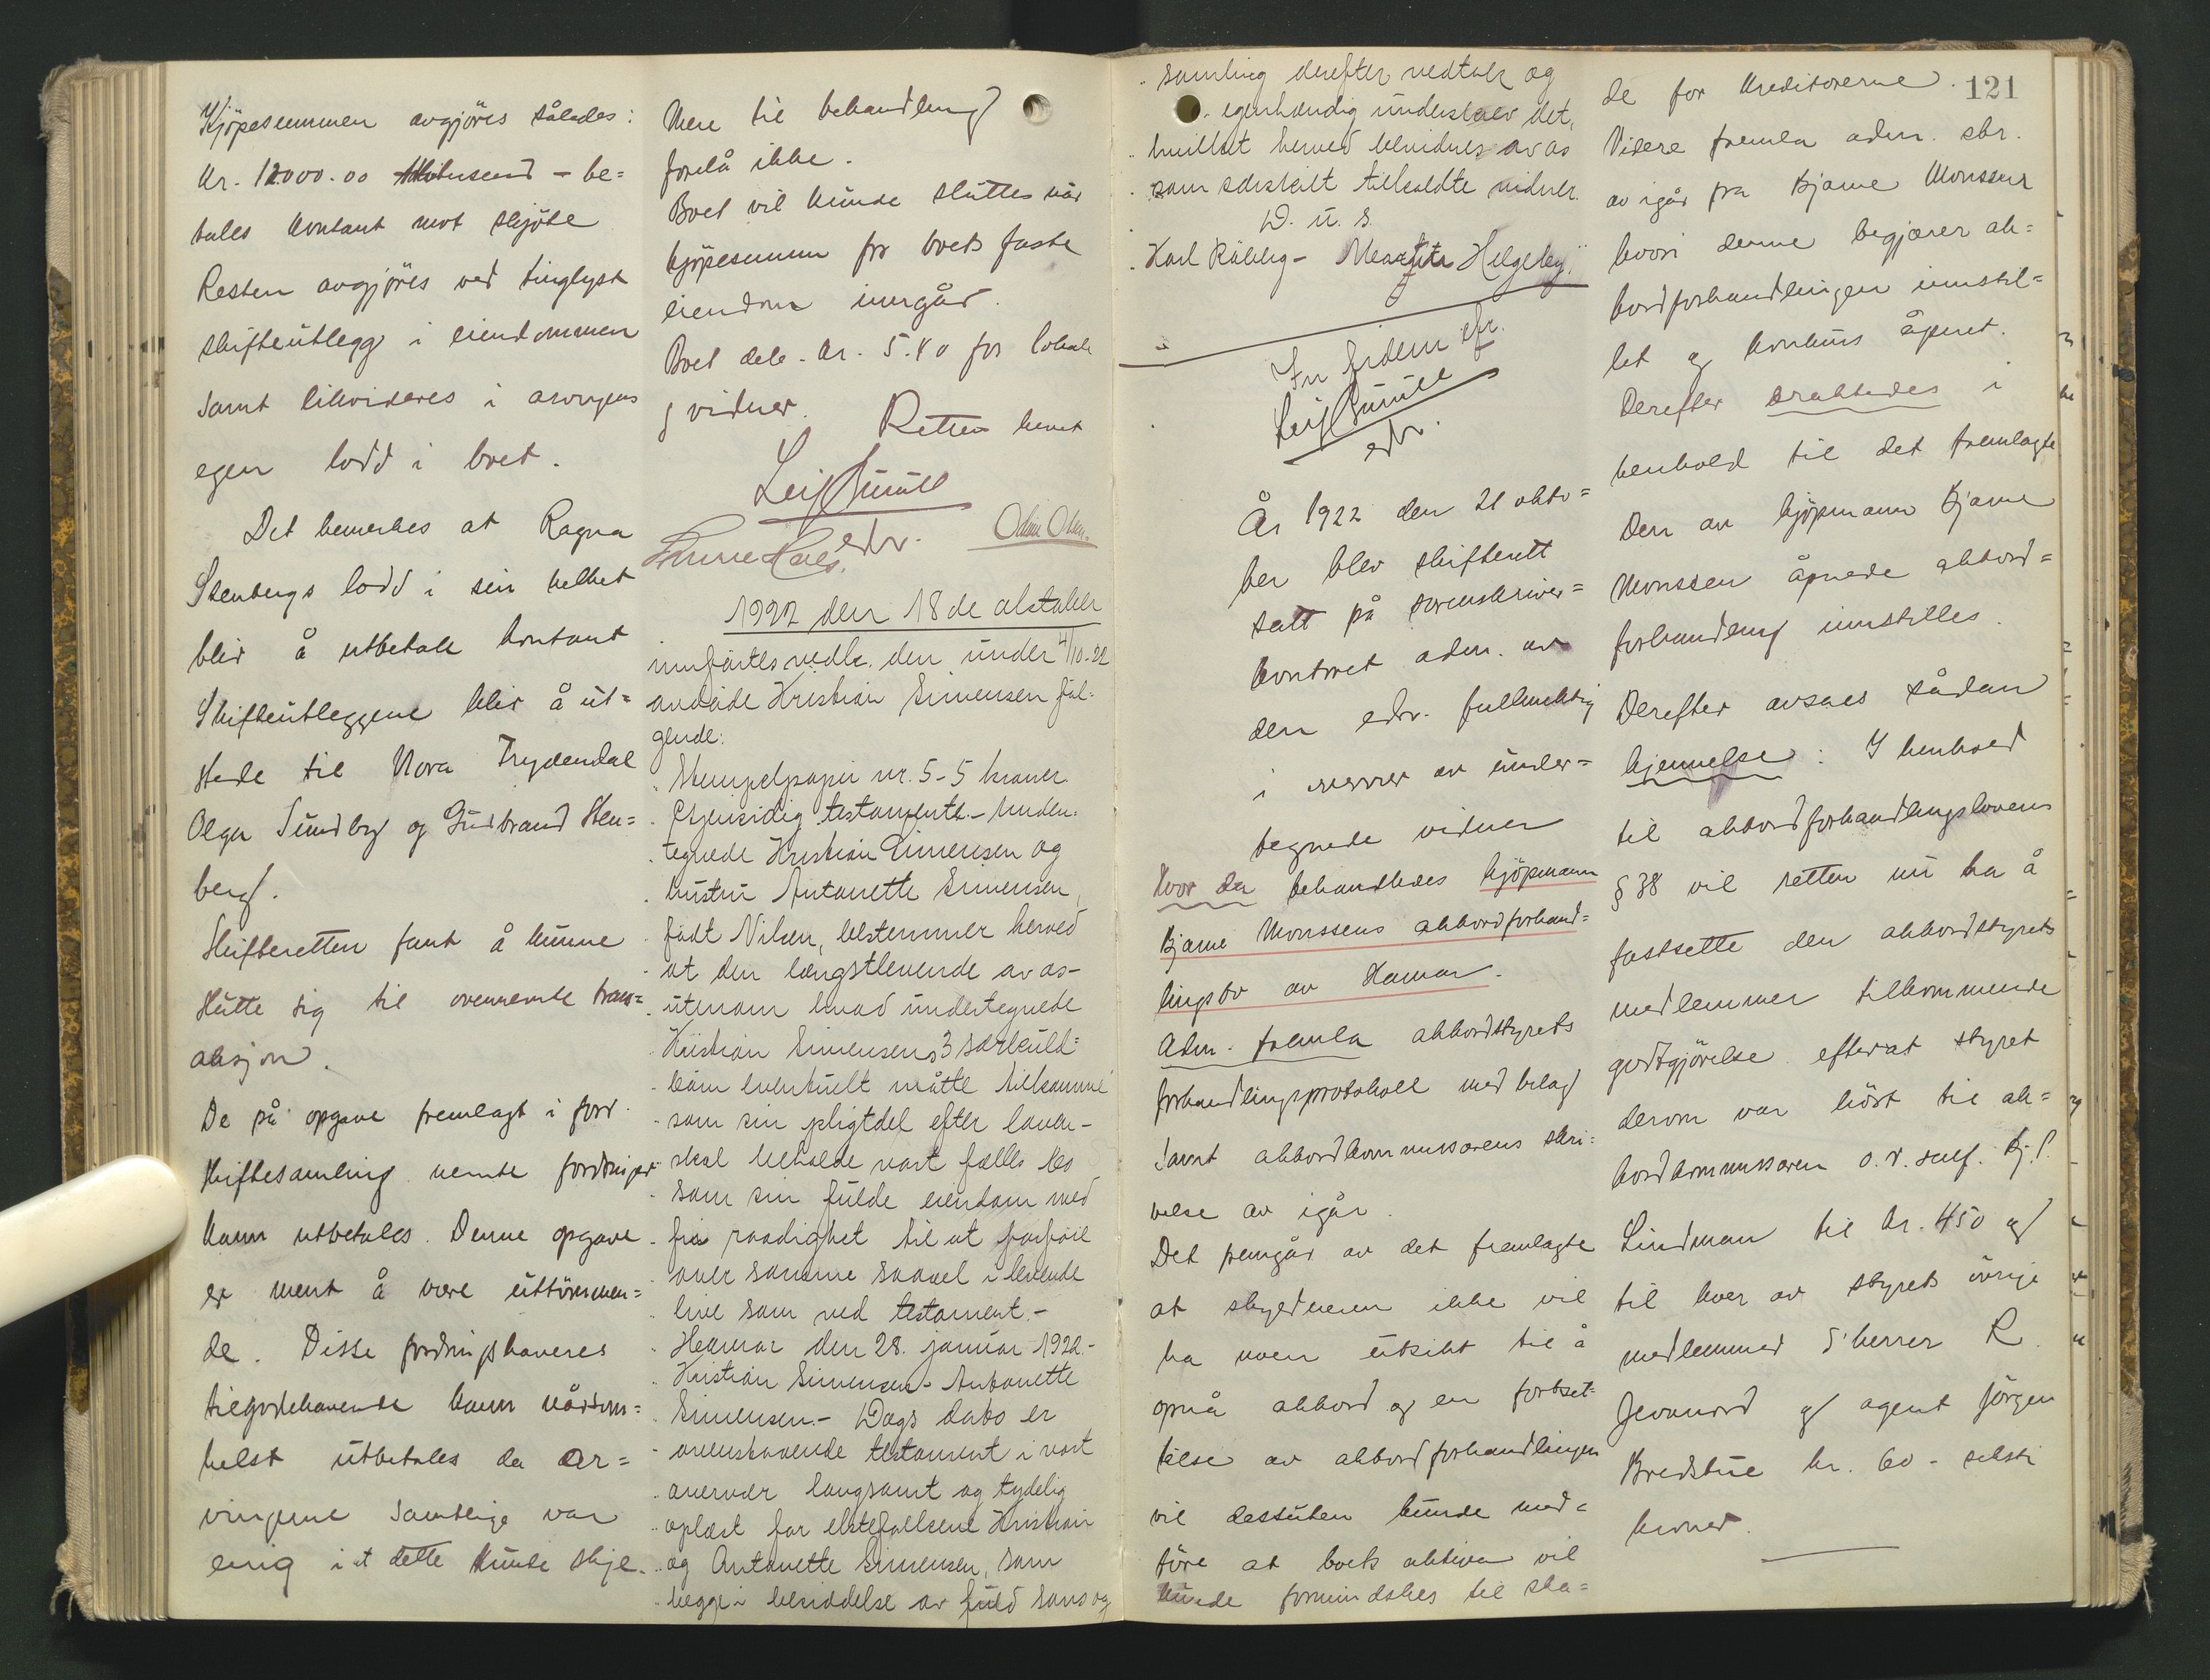 Kjöpesummen avgjöres således:
Kr. 12000.00 - be=
tales kontant mot skjöte
Resten avgjöres ved tinglyst
skifteutlegg i eiendommen
samt likvideres i arvingens
egen lodd i boet.
Det bemerkes at Ragna
Stenbergs lodd i sin helhet
blir å utbetale kontant
Skifteutleggene blir å ut=
stede til Nora Frydendal
Olga Sundby og Gudbrand Sten=
berg.
Skifteretten fant å kunne
slutte sig til ovennevnte trans=
aksjon.
De på opgave fremlagt i forr.
skiftesamling nevnte fordringer
kann utbetales. Denne opgave
er ment å være uttömmen=
de. Disse fordringshaveres
tilgodehavende kann nårsom=
helst utbetales da ar=
vingene samtlige var
enig i at dette kunde skje.
Mere til behandling
forelå ikke.
Boet vil kunde sluttes når
kjöpesummen for boets faste
eiendom inngår.
Boet deb. kr. 5.40 for lokale
g vidner.
Retten hevet
Leif
edv.
1922 den 18de oktober
innførtes vedk. den under 4/10-22
avdöde Kristian Simensen föl-
gende:
"Stempelpapir nr. 5-5 kroner.
"Gjensidig testamente.- Under-
"tegnede Kristian Simensen og
"hustru Antonette Simensen,
"födt Nilsen, bestemmer herved
"at den længstlevende av os-
"utenom hvad undertegnede
"Kristian Simensens 3 særkuld=
"börn eventuelt måtte tilkomme
"som sin pligtdel efter loven-
"skal beholde vort fælles bo
"som sin fulde eiendom med
"fri raadighet til at forföie
"over samme saavel i levende
"live som ved testament.-
"Hamar den 28. januar 1922.-
"Kristian Simensen- Antonette
"Simensen.- Dags dato er
"ovenstaaende testament i vort
"overvær langsamt og tydelig
"oplæst for ektefællsene Kristian
"og Antonette Simensen, som
"begge i besiddelse av fuld sans og
"samling derefter vedtok og
"egenhændig underskrev det,
"hvilket herved bevidnes av os
"som særskilt tilkaldte vidner.
D. u. s.
"Karl - Helgeby."
In fidem efr.
Leif
edv.
År 1922 den 21 okto=
ber blev skifterett
satt på sorenskriver=
kontoret adm. av
den edv. fullmektig
i nærvær av under=
tegnede vidner
Hvor da behandledes kjöpmann
Bjarne Monssens akkordforhand=
lingsbo av Hamar.
Adm. fremla akkordstyrets
forhandlingsprotokoll med bilag
samt akkordkommissærens skri=
velse av igår.
Det fremgår av det fremlagte
at skyldneren ikke vil
ha noen utsikt til å
opnå akkord og en fortset=
telse av akkordforhandlingen
vil dessuten kunde med=
före at boets aktiva vil
kunde formindskes til ska=
de for kreditorerne. 121
Videre fremla adm. skr.
av igår fra Bjarne Monssen
hvori denne begjærer ak=
kordforhandlingen innstil=
let og konkurs åpnet.
Derefter besluttedes i
henhold til det fremlagte
Den av kjöpmann Bjarne
Monssen åpnede akkord=
forhandling innstilles.
Derefter avsaes sådan
kjennelse: I henhold
til akkordforhandlingslovens
§ 38 vil retten nu ha å
fastsette den akkordstyrets
medlemmer tilkommende
godtgjörelse efterat styret
derom var hört til ak=
kordkommissæren o.r.sakf. Bj. P.
Lindman til kr. 450 og
til hver av styrets övrige
medlemmer D'herrer R.
Jevanord og agent Jörgen
Bredstue kr. 60 - seksti
kroner.